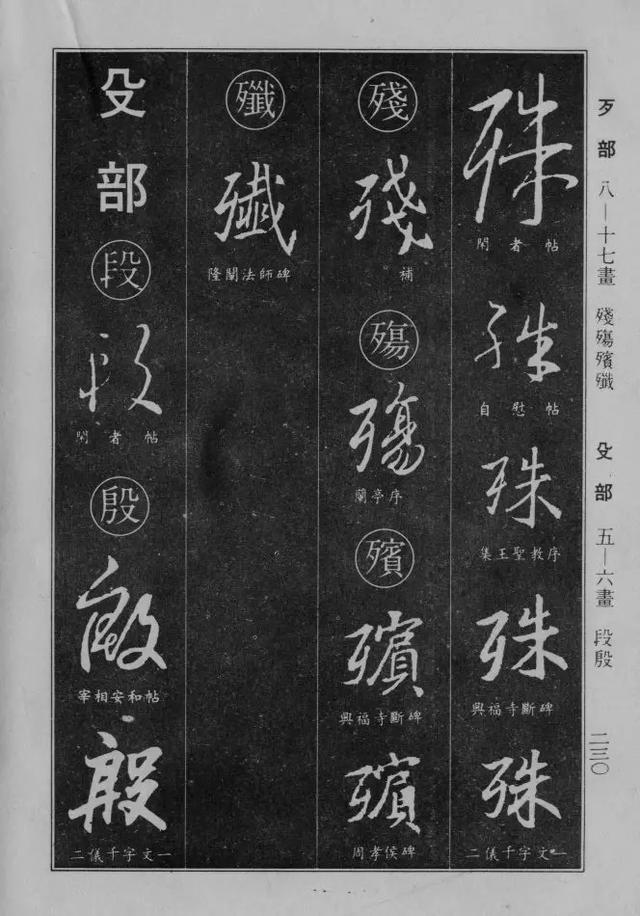 歹部 八—十七畫 殘殤殯殲 殳部 五—六畫 段殷 二三〇
殊
閑者帖
殊
自慰帖
殊
集王聖教序
殊
興福寺斷碑
殊
二儀千字文一
殘
殘
補
殤
殤
蘭亭序
殯
殯
興福寺斷碑
殯
周孝侯碑
殲
殲
隆闡法師碑
殳部
段
段
閑者帖
殷
殷
宰相安和帖
殷
二儀千字文一